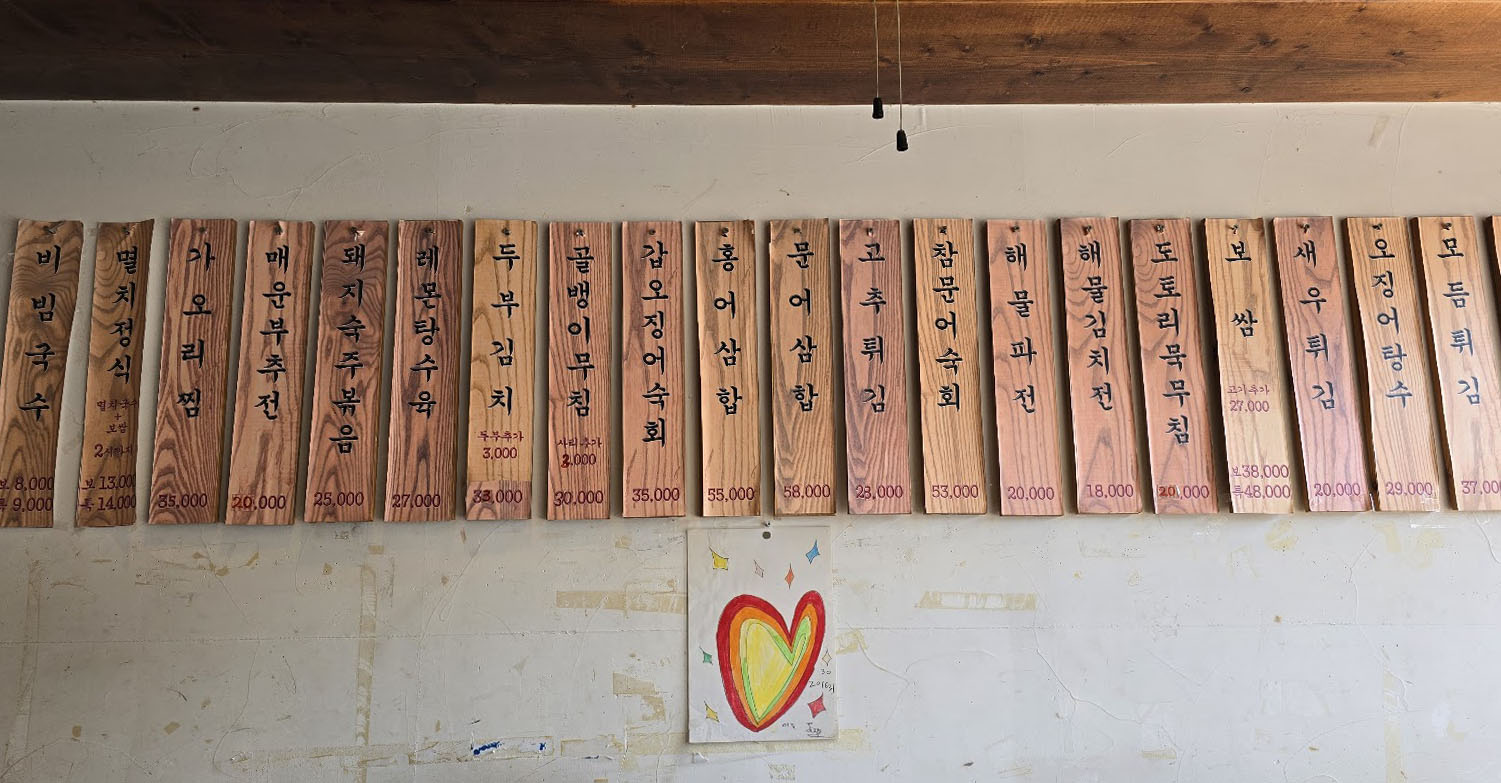 비빔국수
보 8,000
특 9,000
멸치정식
멸치국수
+
보쌈
2시까지
보 13,000
특 14,000
가오리찜
35,000
매운부추전
20,000
돼지숙주볶음
25,000
레몬탕수육
27,000
두부김치
두부추가
3,000
33,000
골뱅이무침
사리추가
3,000
30,000
갑오징어숙회
35,000
홍어삼합
55,000
문어삼합
58,000
고추튀김
28,000
참문어숙회
53,000
해물파전
20,000
해물김치전
18,000
도토리묵무침
20,000
보쌈
고기추가
27,000
보38,000
특48,000
새우튀김
20,000
오징어탕수
29,000
모듬튀김
37,000